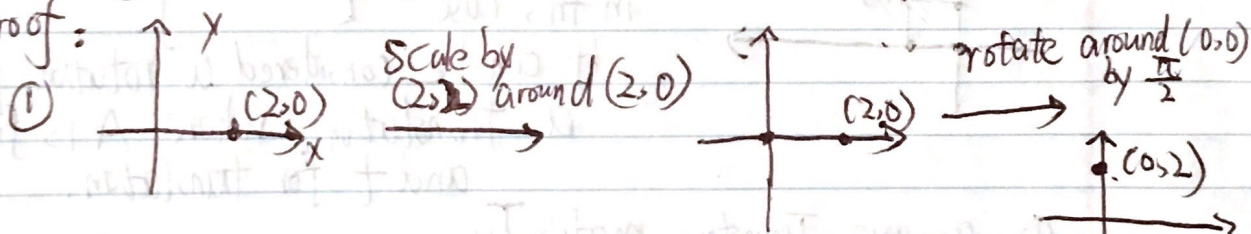 roof:
① y (2,0) x
Scale by
(2,2) around (2,0)
(2,0)
rotate around (0,0)
by π/2
(0,2)